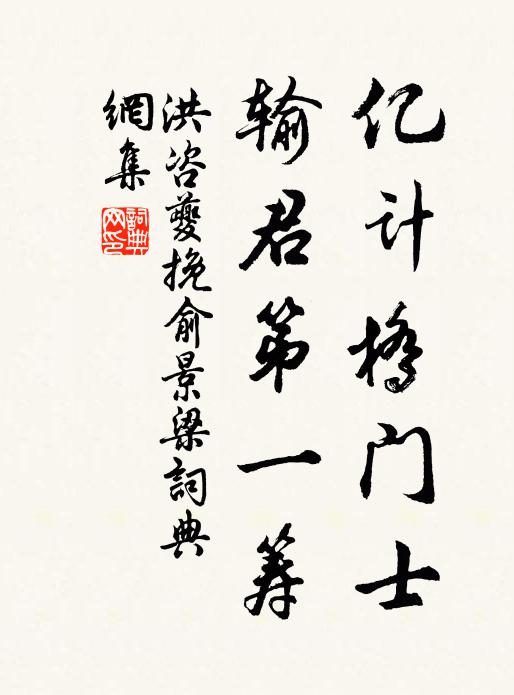 亿计桥门士
输君第一筹
洪咨夔挽俞景梁詞典
網集
詞典網印